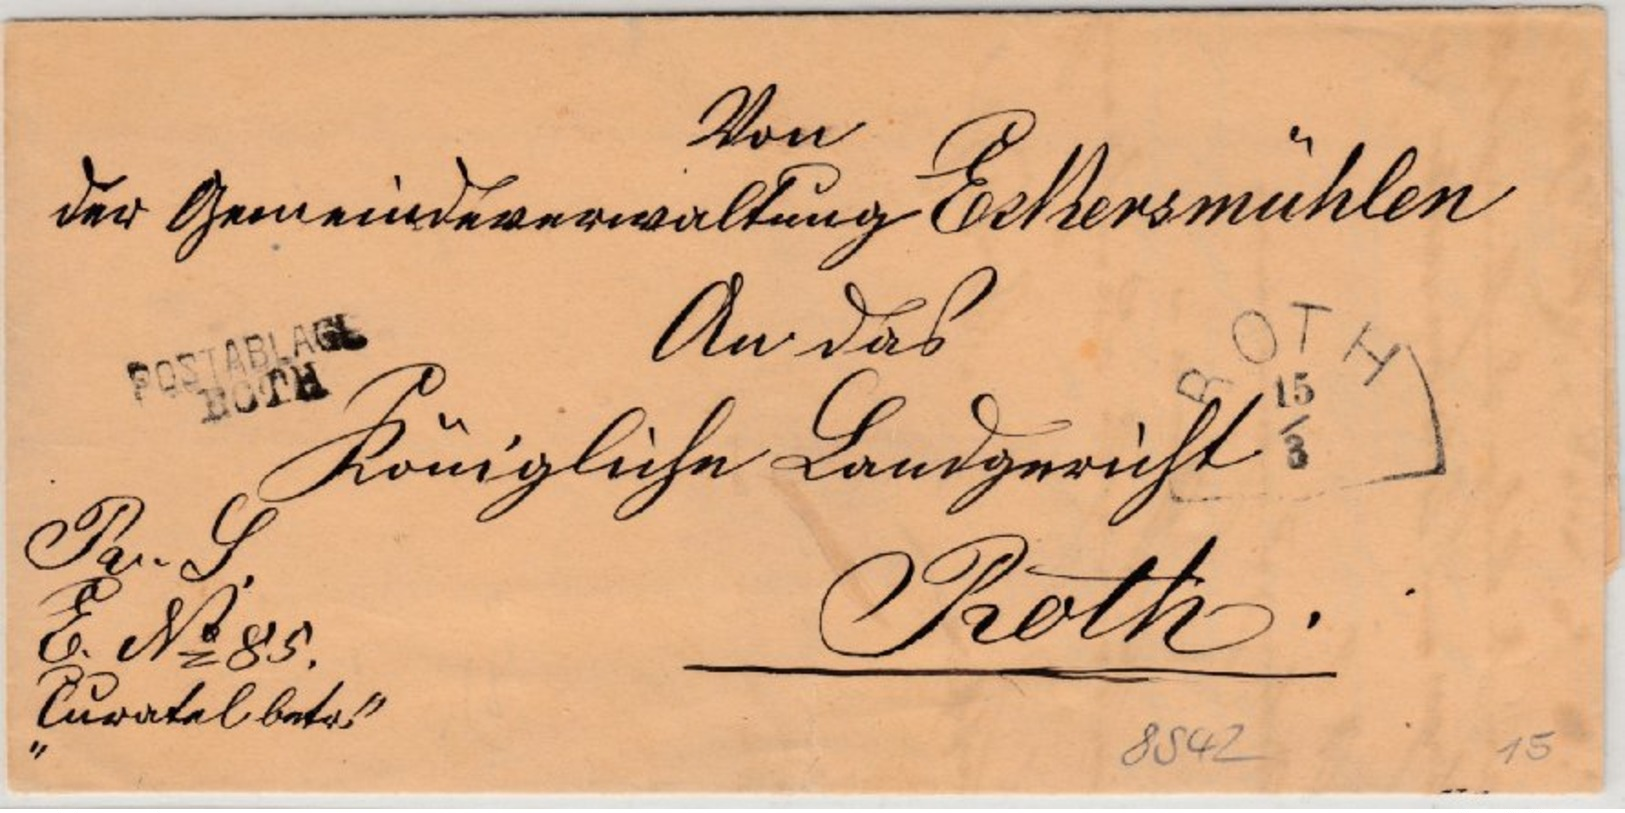 Von
der Gemeindeverwaltung Eckersmühlen
An das
POSTABLAGE
ROTH
ROTH
15
/
3
Königliche Landgericht
Roth.
P. S.
E. No 85.
Curatel betr."
"
8542
15